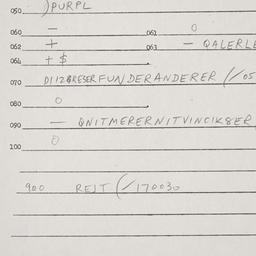 050 )PURPL
060 — 061 0
062 + 063 — QALERLE
064 + $
070 D112BRESERFUNDERANDERER (/05
080 0
090 — QNITMERERNITVINCIK8ER
100 0
900 REJT (/170030